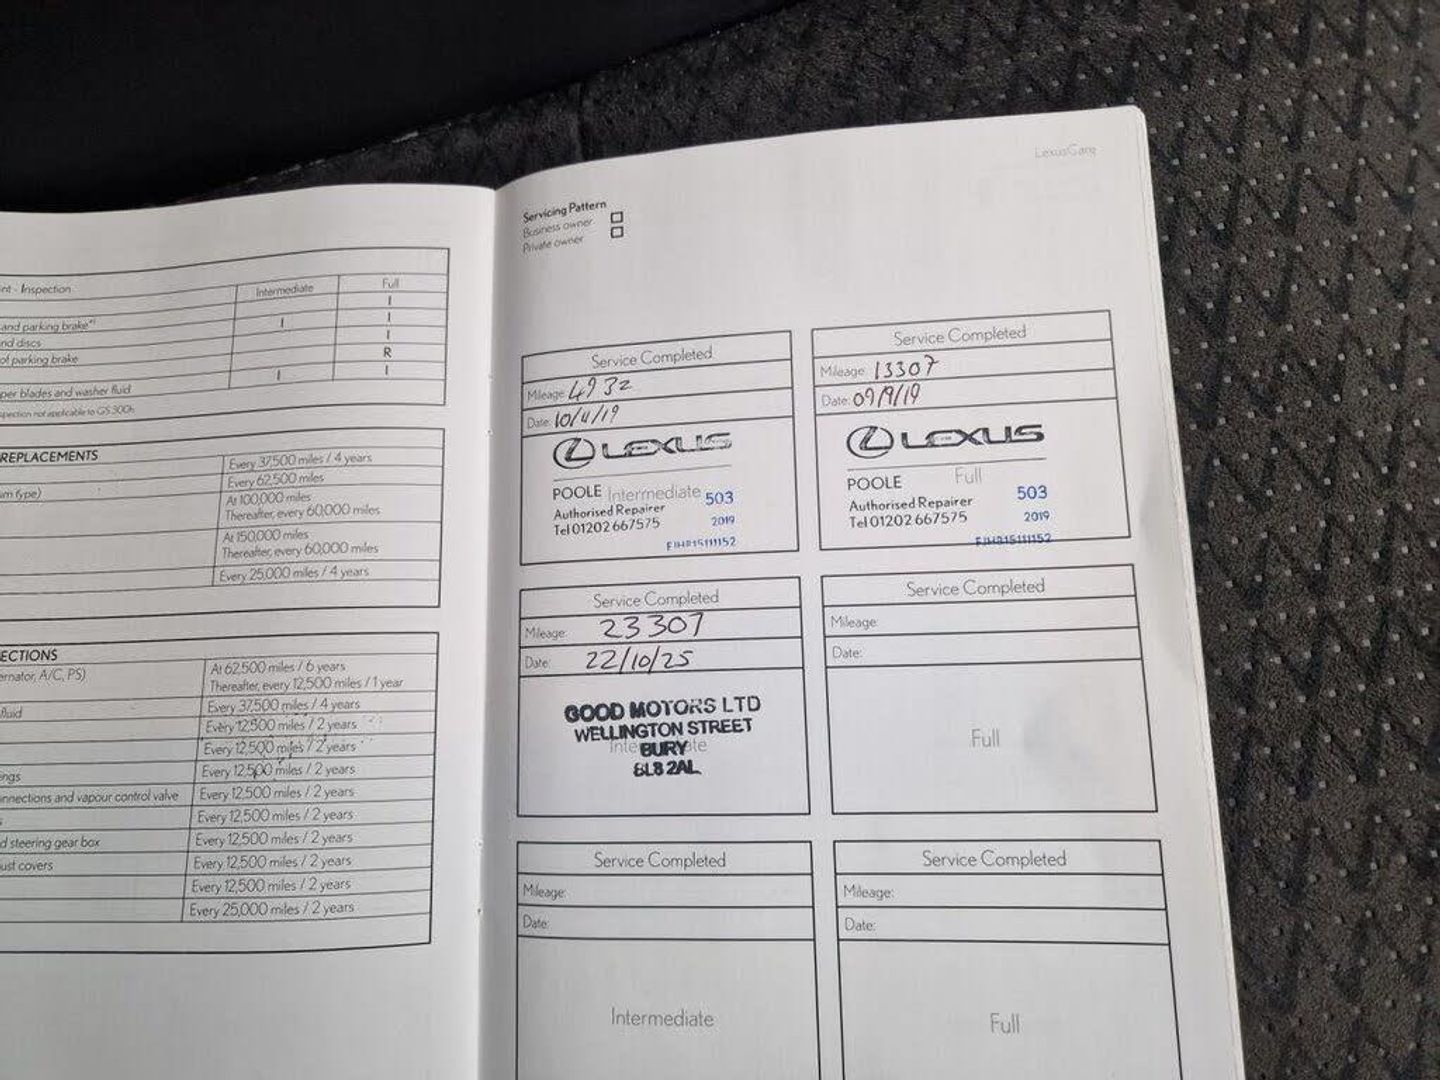 nt - Inspection
Intermediate
Full
I
and parking brake*¹
I
I
nd discs
I
of parking brake
R
per blades and washer fluid
I
I
spection not applicable to GS 300h
REPLACEMENTS
Every 37,500 miles / 4 years
um type)
Every 62,500 miles
At 100,000 miles
Thereafter, every 60,000 miles
At 150,000 miles
Thereafter, every 60,000 miles
Every 25,000 miles / 4 years
ECTIONS
ernator, A/C, PS)
At 62,500 miles / 6 years
Thereafter, every 12,500 miles / 1 year
fluid
Every 37,500 miles / 4 years
Every 12,500 miles / 2 years
Every 12,500 miles / 2 years
ngs
Every 12,500 miles / 2 years
nnections and vapour control valve
Every 12,500 miles / 2 years
s
Every 12,500 miles / 2 years
d steering gear box
Every 12,500 miles / 2 years
ust covers
Every 12,500 miles / 2 years
Every 12,500 miles / 2 years
Every 25,000 miles / 2 years
LexusCare
Servicing Pattern
Business owner
Private owner
Service Completed
Mileage: 4932
Date: 10/4/19
LEXUS
POOLE Intermediate 503
Authorised Repairer
2019
Tel 01202 667575
Service Completed
Mileage: 13307
Date: 09/9/19
LEXUS
POOLE Full
503
Authorised Repairer
2019
Tel 01202 667575
Service Completed
Mileage: 23307
Date: 22/10/25
GOOD MOTORS LTD
WELLINGTON STREET
Intermediate
BURY
BL8 2AL
Service Completed
Mileage:
Date:
Full
Service Completed
Mileage:
Date:
Intermediate
Service Completed
Mileage:
Date:
Full